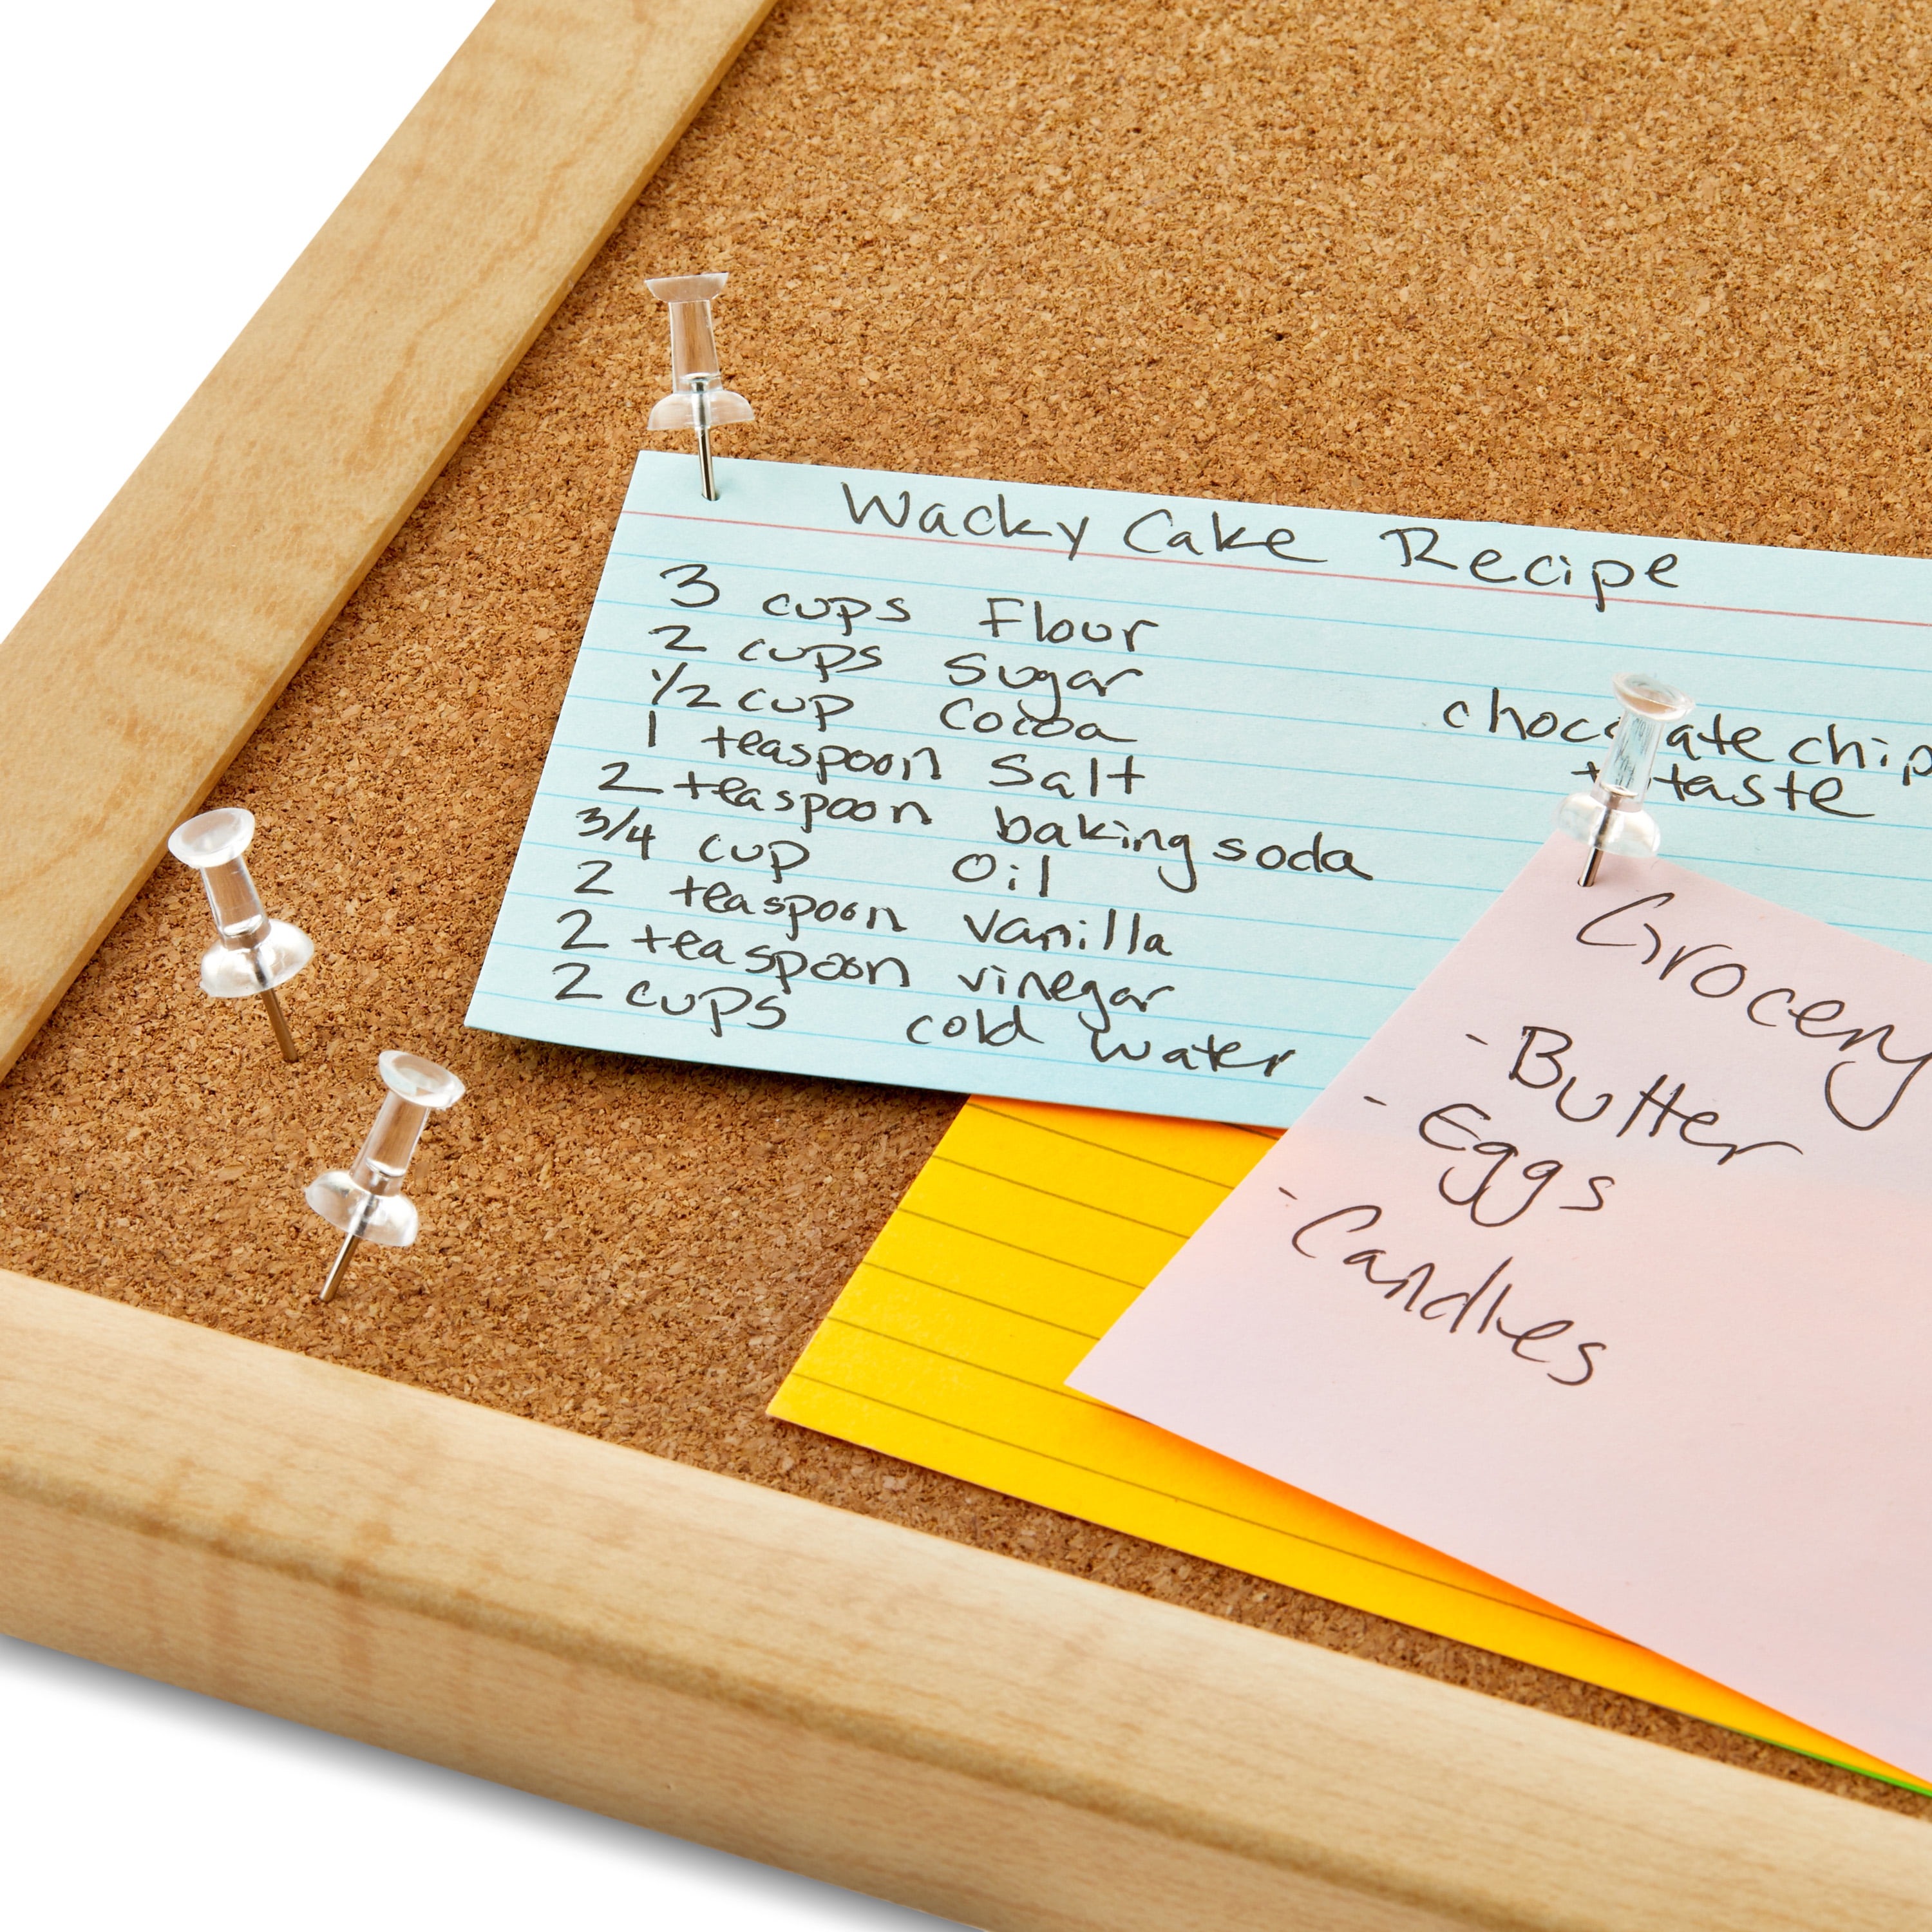 Wacky Cake Recipe
3 cups Flour
2 cups Sugar
1/2 cup Cocoa
1 teaspoon Salt
2 teaspoon baking soda
3/4 cup Oil
2 teaspoon Vanilla
2 teaspoon vinegar
2 cups cold water
chocolate chip
to taste
Grocery
- Butter
- Eggs
- Candles